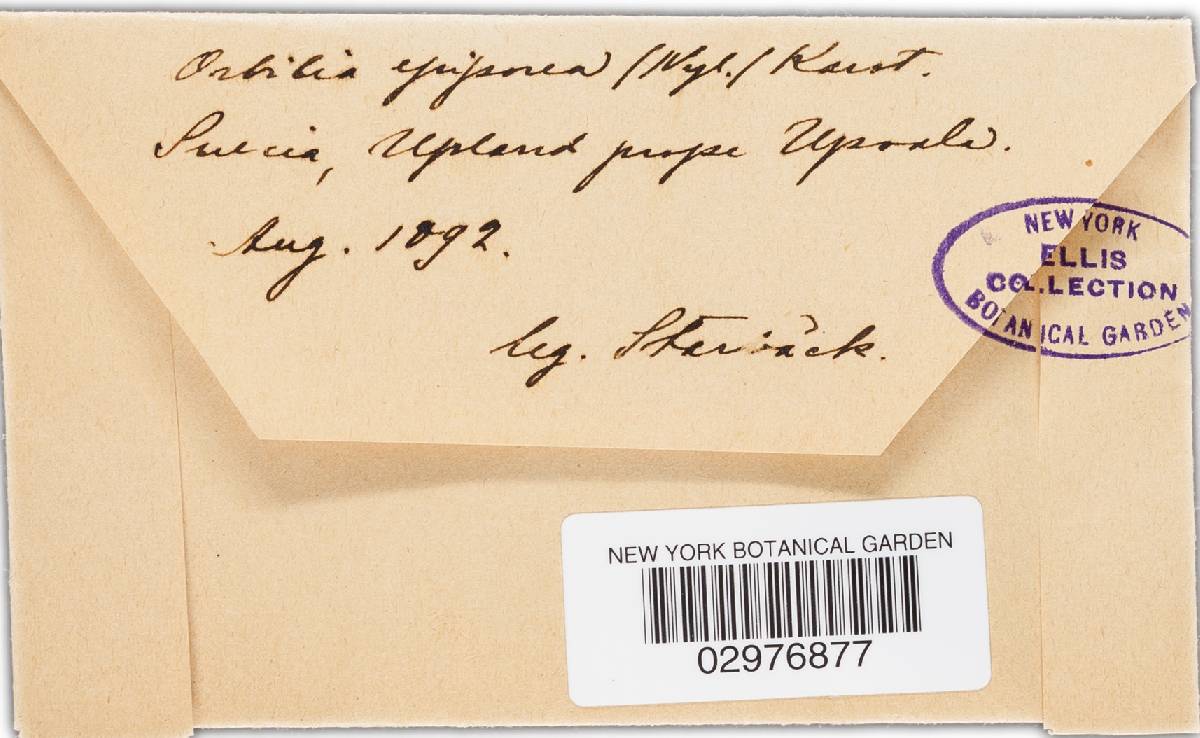 Orbilia epipora (Nyl.) Karst.
Suecia, Upland prope Upsala.
Aug. 1892.
leg. Starbäck.
NEW YORK
ELLIS
COLLECTION
BOTANICAL GARDEN
NEW YORK BOTANICAL GARDEN
02976877